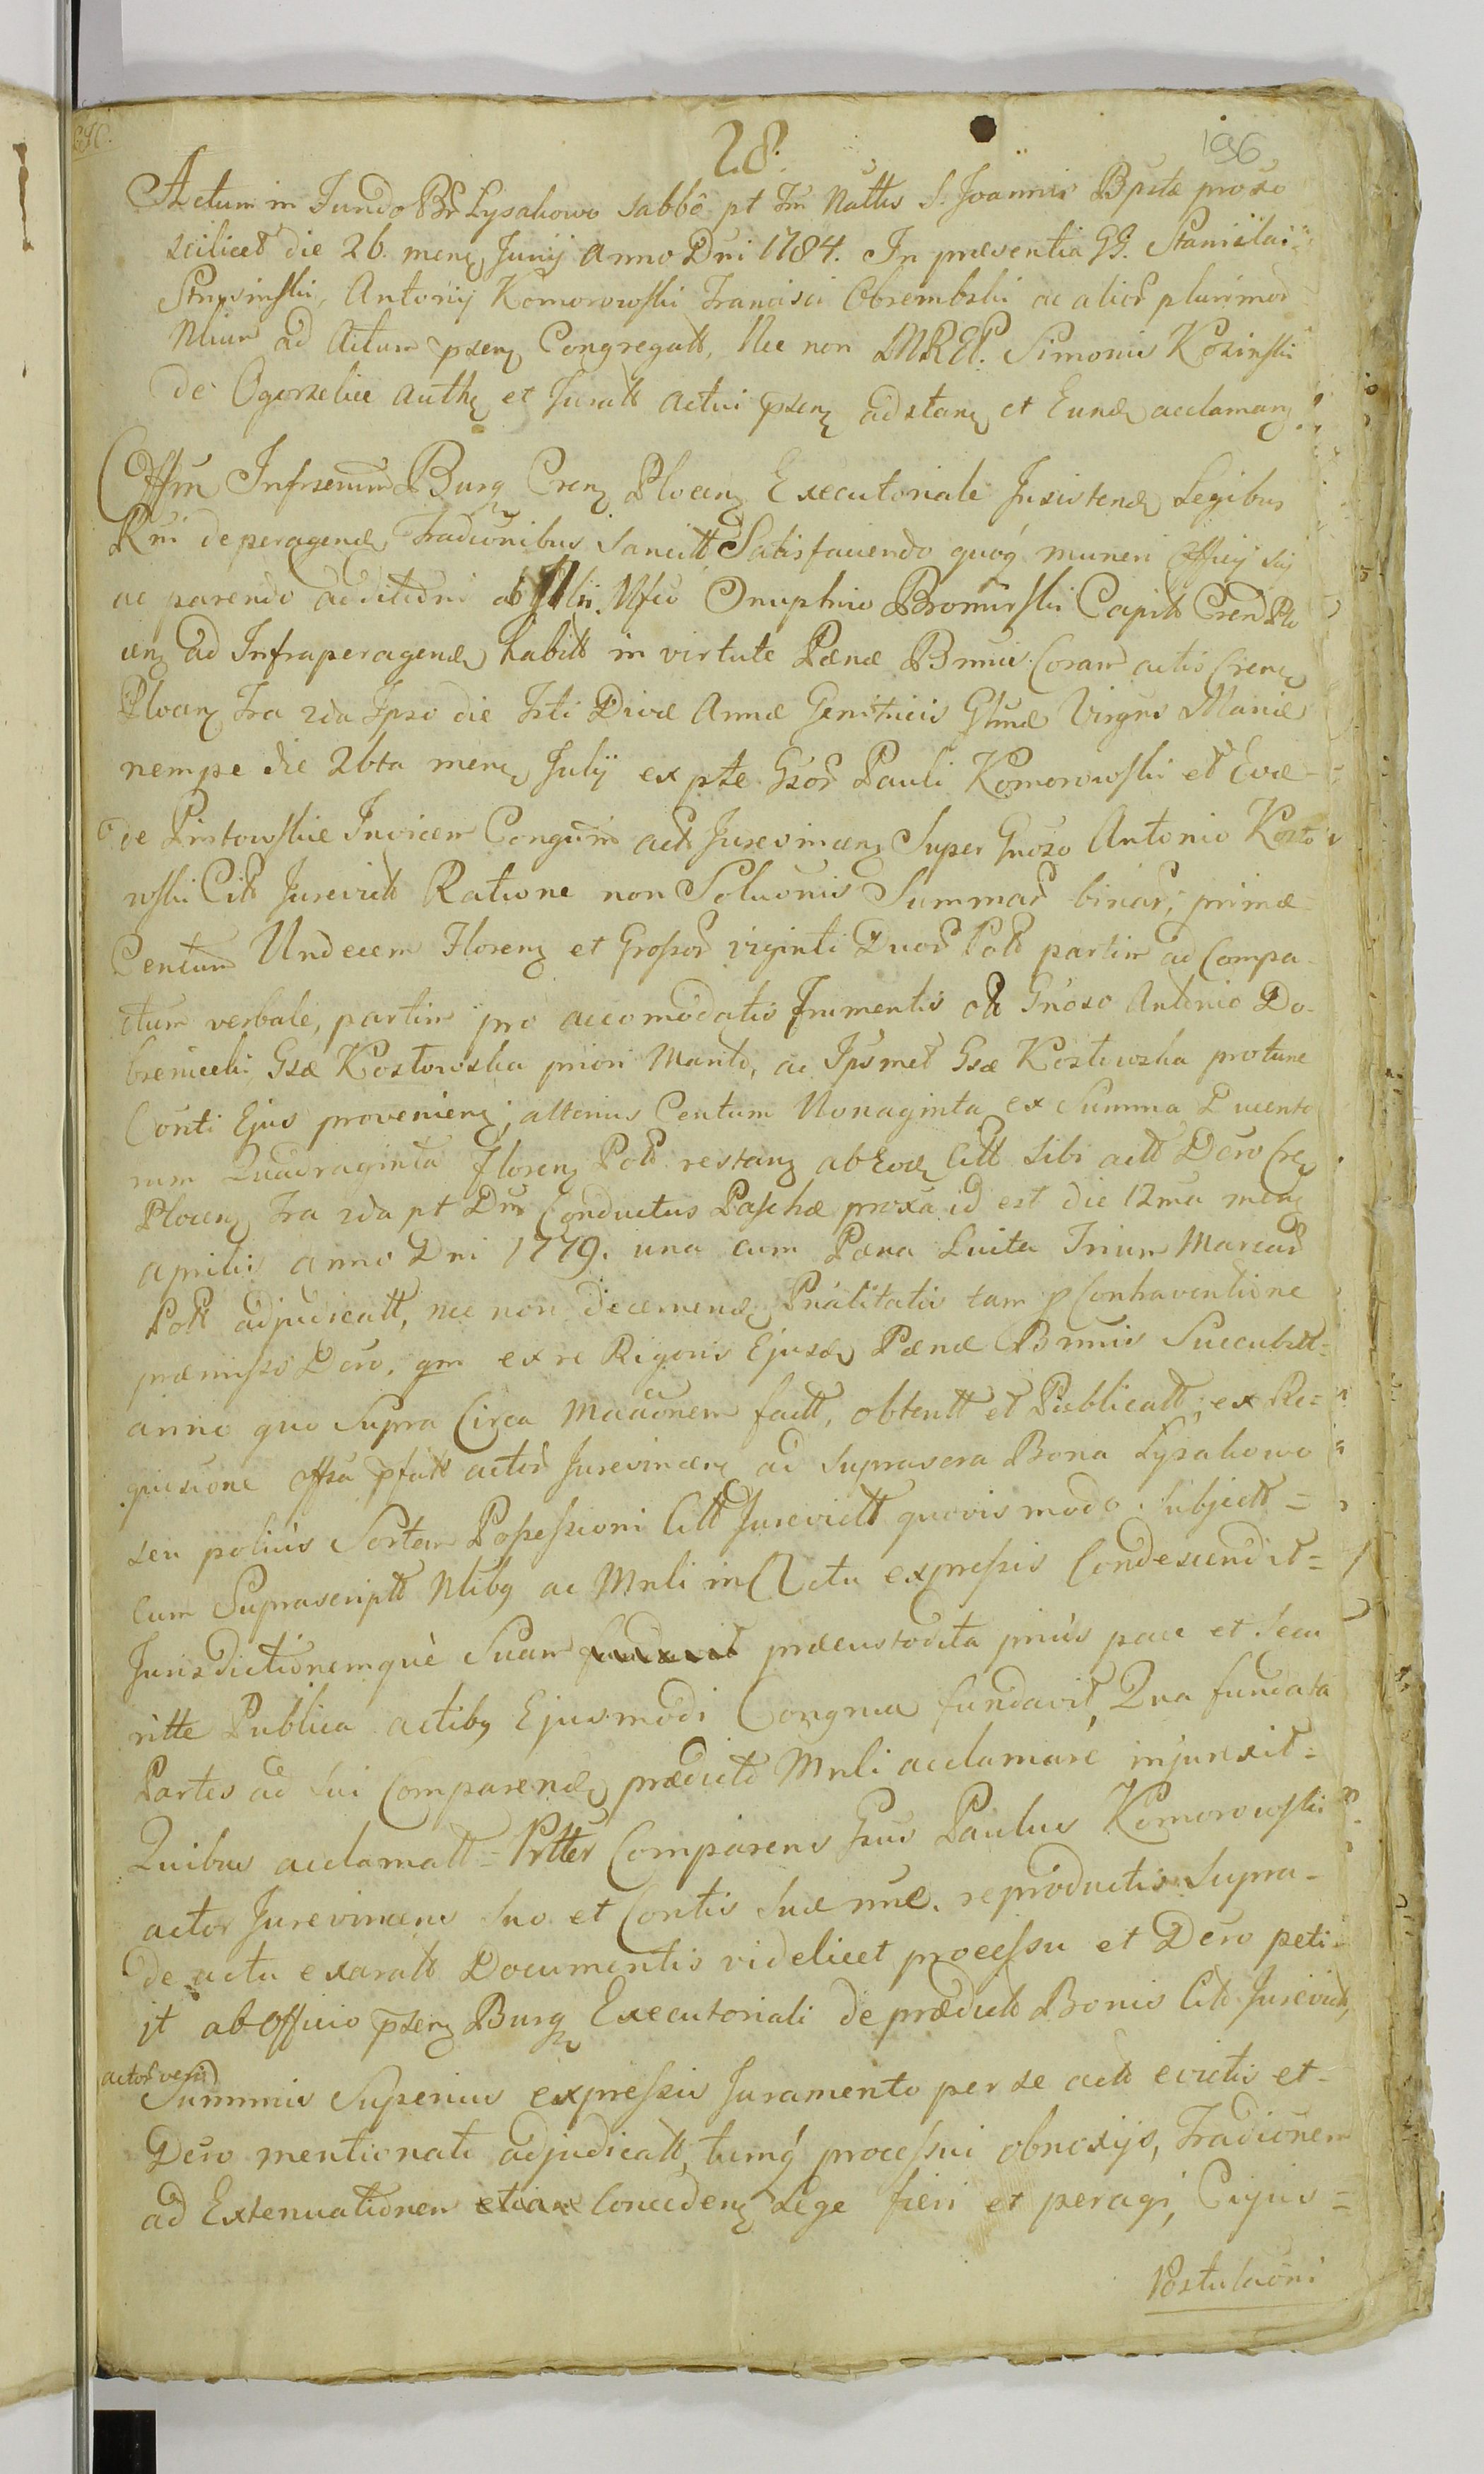 28.
196
Actum in Fundo Br Lysakowo Sabbo pt Fm Nattis S. Joannis Bpstæ proxo
scilicet die 26. menz Junij Anno Dni 1784. In præsentia GG. Stanislai
Antonij Komorowski Francisci Obrembski ac alior plurimor
Nlium ad Actum psenz Congregatt, Nec non MREP. Simonis Kosinski
de Ogorzelice authz et Juratt actui psenz adstanz et Eund acclamanz
Offm Infrscrium Burg Crenz Plocenz Executoriale Insistend Legibus
Rni de peragend Tradionibus Sancitt Satisfaciendo quoq muneri Officij sui
ac parendo additioni ab Illri. Mfco Onuphrio Bromirski Capit Cren Plo
cenz ad Infraperagend habitt in virtute Pænæ Bnnis Coram actis Crenz
Plocenz Fra 2da Ipso die Fsti Divæ Annæ Genitricis Glmæ Virgnis Mariæ
nempe die 26ta menz Julij ex pte Gsor Pauli Komorowski et Evæ
de Pintowskie Invicem Congum act Jurevincenz Super Gnoso Antonio Kosto
wski Citt Jurevictt Ratione non Soluonis Summar binar, primæ
Centum Undecem Florenz et Grossor viginti Duor Poll partim ad Compa
ctum verbale, partim pro accomodatis frumentis ob Gnoso Antonio Do
briniecki Gsæ Kostowska priori Marito, ac Ipsmet Gsæ Kostowska protunc
Conti Ejus provenienz; alterius Centum Nonaginta ex Summa Ducento
rum Quadraginta florenz Poll restanz ab Eod Citt sibi actt Dcro Crenz
Plocenz Fra 2da pt Dm Conductus Paschæ proxa id est die 12ma menz
Aprilis anno Dni 1779. una cum Pæna Luita Trium Marcar
Poll adjudicatt, nec non decernend Pnalitatis tam p Contraventione
præmisso Dcro, qm ex re Rigoris Ejusd Pænæ Bnnis Succubitt
anno quo Supra Circa Moãonem factt, obtentt et Publicatt; ex Re=
quisione Offsa pfatt actor Jurevincenz ad Suprascra Bona Lysakowo
seu potius Sortem Possessioni Citt Jurevictt quovis modo Subjectt =
cum Suprascriptt Nlibq ac Mnli in Actu expressis Condescendit =
Jurisdictionemque Suam præcustodita prius pace et Secu
ritte Publica actibq Ejusmodi Congrua fundavit, Qua fundata
Partes ad sui Comparend prædicto Mnli acclamare injunxit =
Quibus acclamatt = Prtter Comparens Gsus Paulus Komorowski
actor Jurevincens Suo et Contis Suæ nne. reproductis Supra-
de actu exaratt Documentis videlicet processu et Dcro peti-
jt ab Officio psenz Burg Executoriali de prædictt Bonis Citt Jurevictt,
actor vero
Summis Superius expressis Juramento per se actt evictis et
Dcro mentionato adjudicatt, tumq processui obnoxijs, Tradionem
ad Extenuationem etiam Concedenz Lege fieri et peragi, Cujus =
Postulaoni